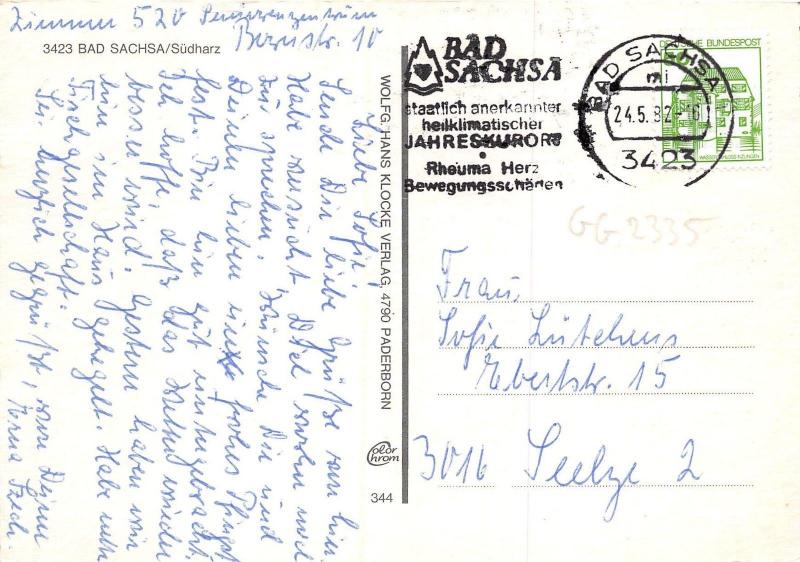 Zimmer 520
3423 BAD SACHSA/Südharz
Liebe Sofie!
Sende Dir liebe Grüße von hier.
Habe versucht Dich
zu sprechen. Wünsche Dir und
Deinen lieben frohes Pfingst
fest. Bin hier gut untergebracht.
Ich hoffe, daß das Wetter wieder
besser wird. Gestern haben wir
hier im Haus gekegelt. Habe nette
Tischgesellschaft.
Sei herzlich gegrüßt, von Deiner
Erna
WOLFG. HANS KLOCKE VERLAG, 4790 PADERBORN
Color
chrom
344
BAD
SACHSA
staatlich anerkannter
heilklimatischer
JAHRESKURORT
Rheuma Herz
Bewegungsschäden
BAD SACHSA
mi
24.5.82-16
3423
DEUTSCHE BUNDESPOST
WASSERSCHLOSS INZLINGEN
GG 2335
Frau
Sofie Lütkehus
Ebertstr. 15
3016 Seelze 2